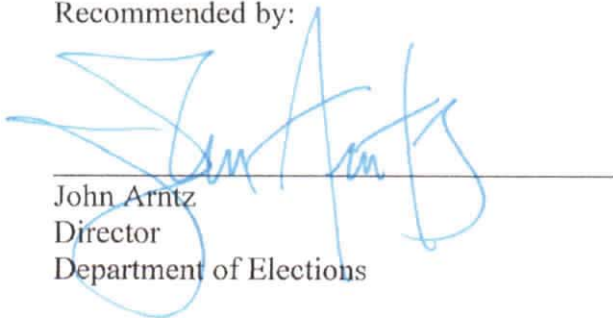 Recommended by:
John Arntz
John Arntz
Director
Department of Elections